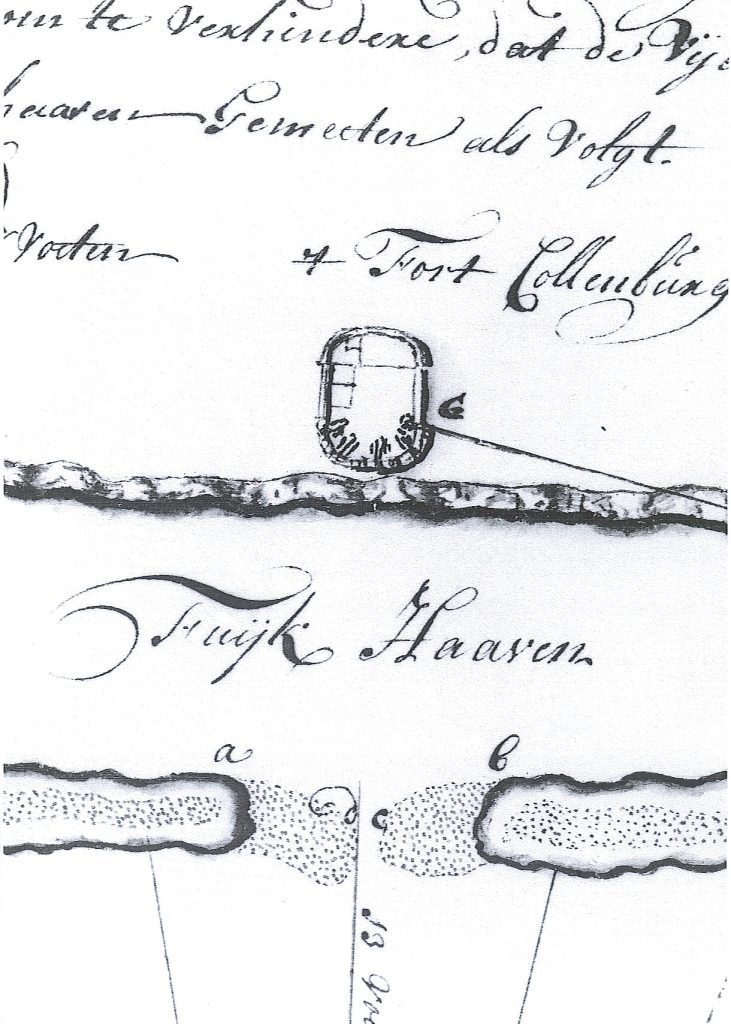 te verhindere, dat de Vije
haaven Gemeeten als volgt.
Voeten
't Fort Collenburg
G
Fuijk Haaven
a b
d c
13 Voe